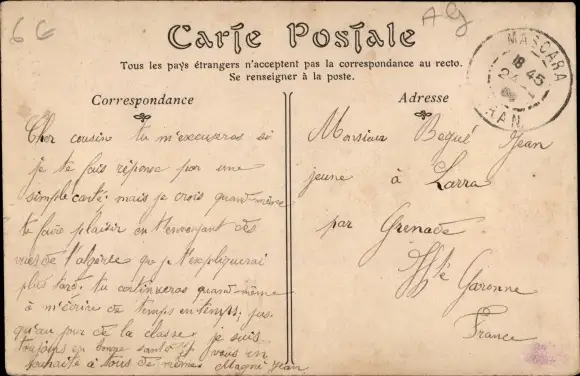 6 G
Alg
Carte Postale
Tous les pays étrangers n'acceptent pas la correspondance au recto.
Se renseigner à la poste.
MASCARA
18 45
ORAN
Correspondance
Cher cousin tu m'excuseras si
je te fais réponse par une
simple carte. mais je crois quand même
te faire plaisir en t'envoyant des
vues de l'algérie que je t'expliquerai
plus tard. tu continueras quand même
à m'écrire de temps en temps; jus
qu'au jour de la classe. je suis
toujours en bonne santé et vous en
souhaite à tous de même Magné Jean
Adresse
Monsieur Bequé Jean
jeune à Larra
par Grenade.
Hte Garonne
France